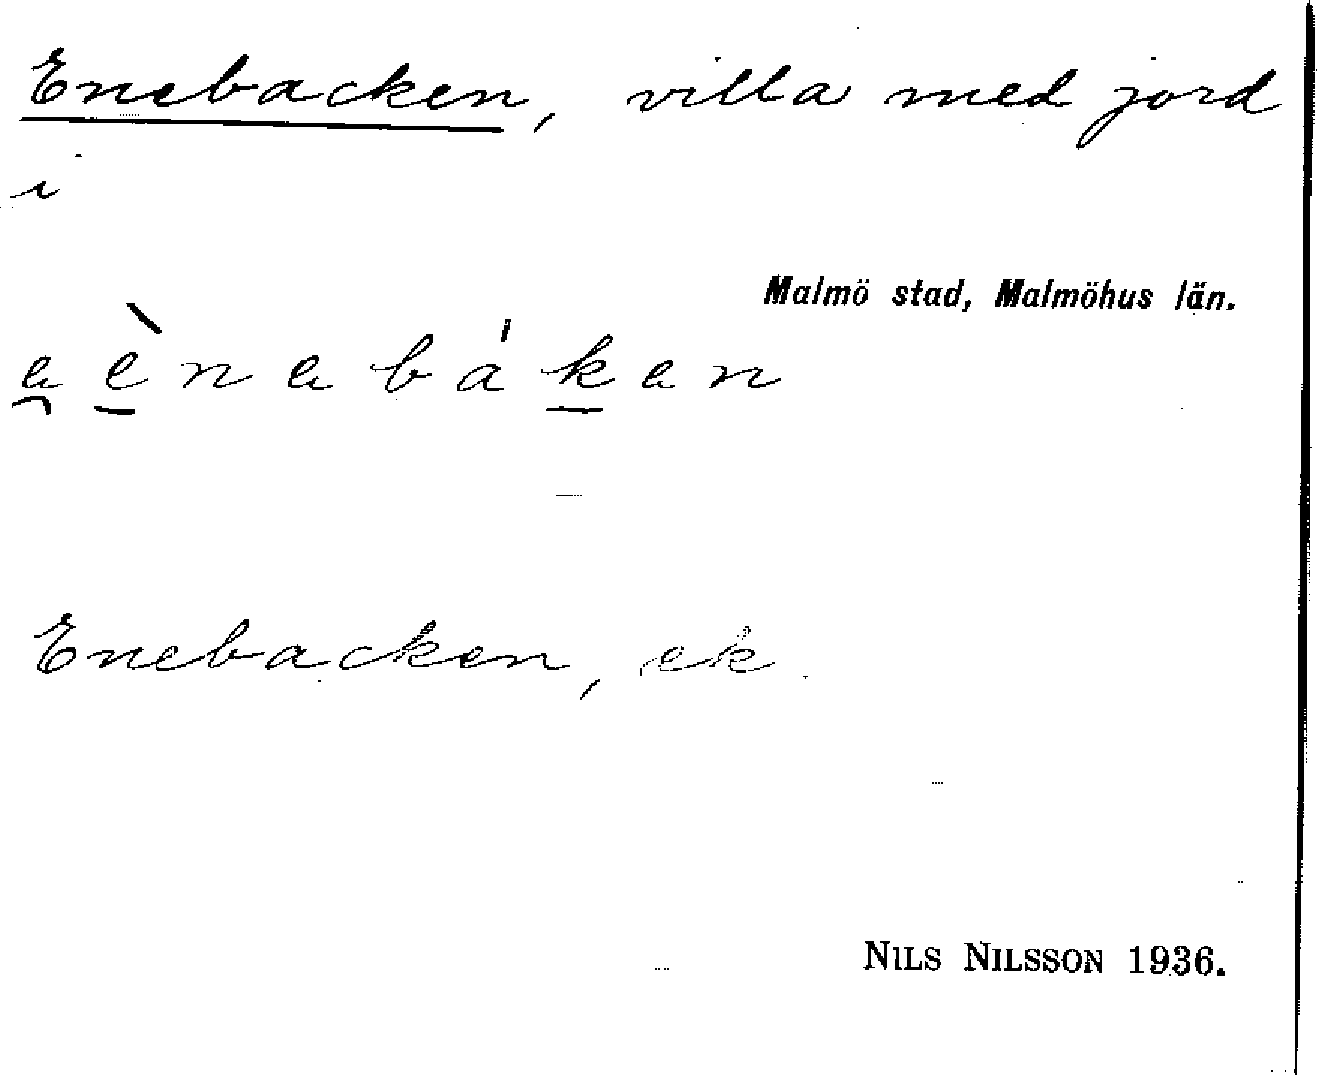 Enebacken, villa med jord
i
Malmö stad, Malmöhus län.
e è n e b á k e n
Enebacken, ek.
NILS NILSSON 1936.